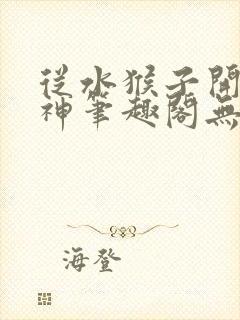 從水猴子開
神筆趣閣無
海登